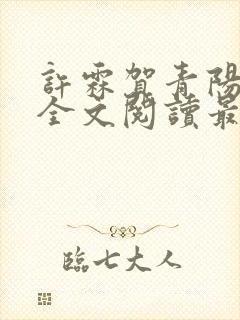 許霖賀青陽
全文閱讀最
臨七大人